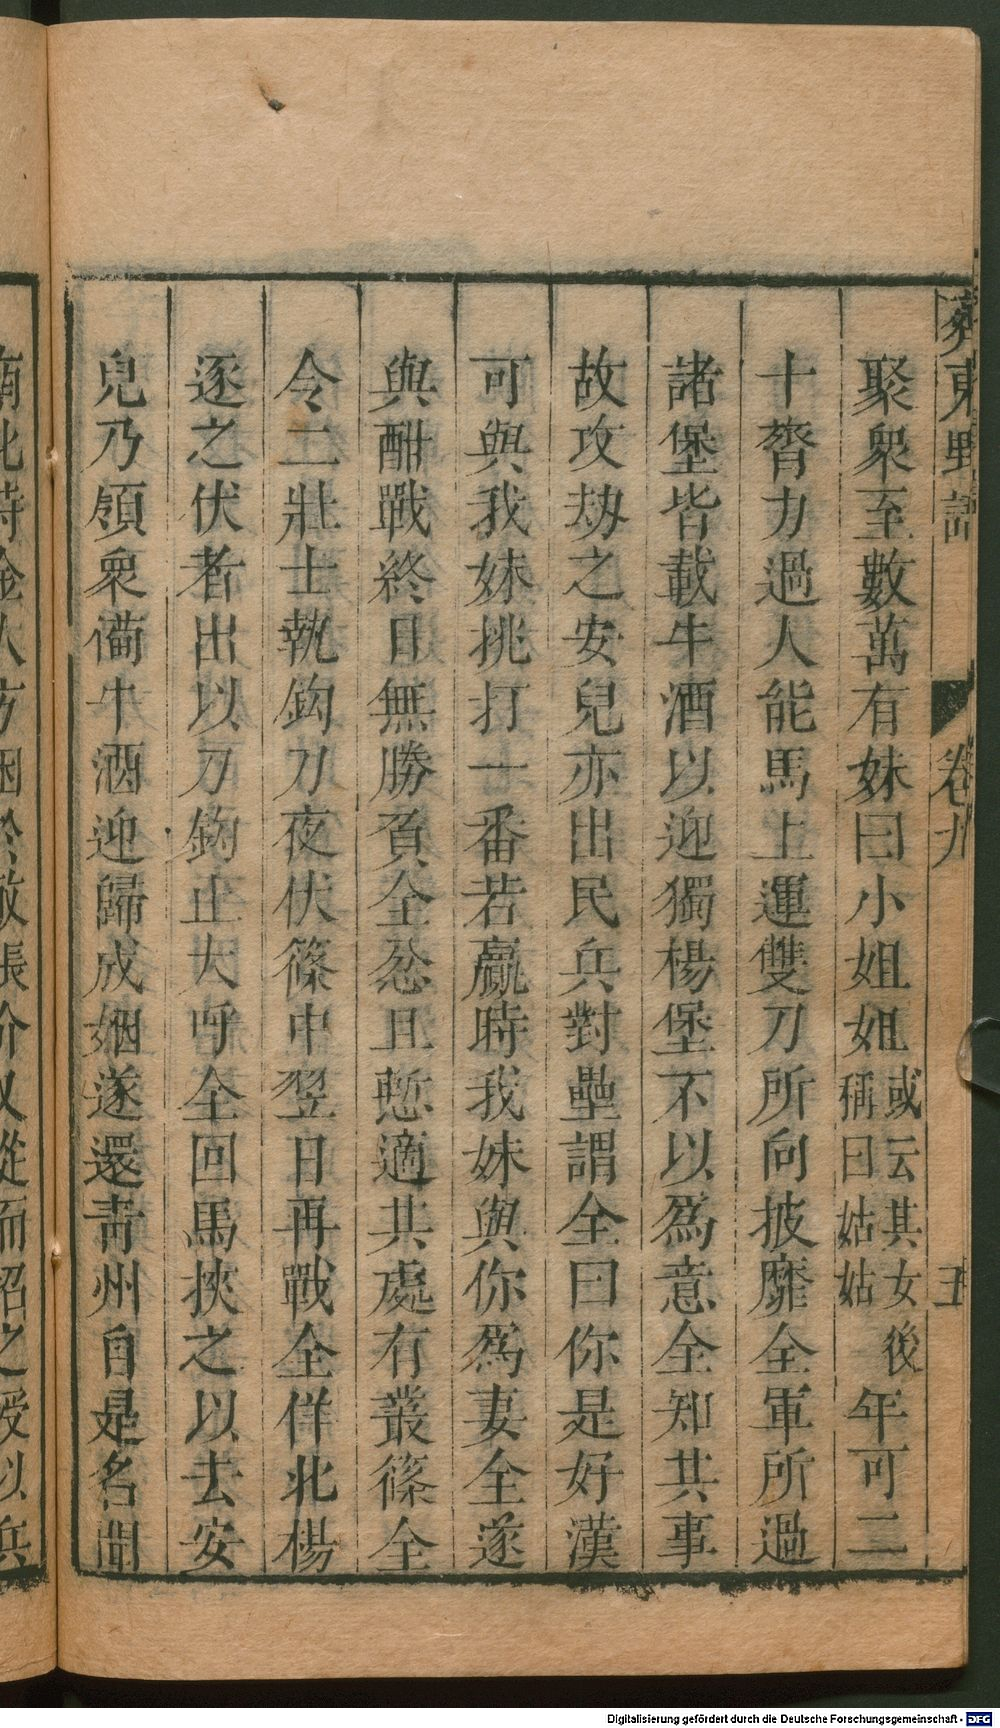 齊東野語 卷九 五
聚衆至數萬有妹曰小姐姐或云其女後稱曰姑姑年可二
十膂力過人能馬上運雙刀所向披靡全軍所過
諸堡皆載牛酒以迎獨楊堡不以爲意全知其事
故攻劫之安兒亦出民兵對壘謂全曰你是好漢
可與我妹挑打一番若贏時我妹與你爲妻全遂
與酣戰終日無勝負全忿且慙適其處有叢篠全
令二壯士執鈎刀夜伏篠中翌日再戰全佯北楊
逐之伏者出以刀鈎止大呼全回馬挾之以去安
兒乃領衆備牛酒迎歸成姻遂還青州自是名聞
南北時金人方困於敵張介又從而招之授以兵
Digitalisierung gefördert durch die Deutsche Forschungsgemeinschaft - DFG